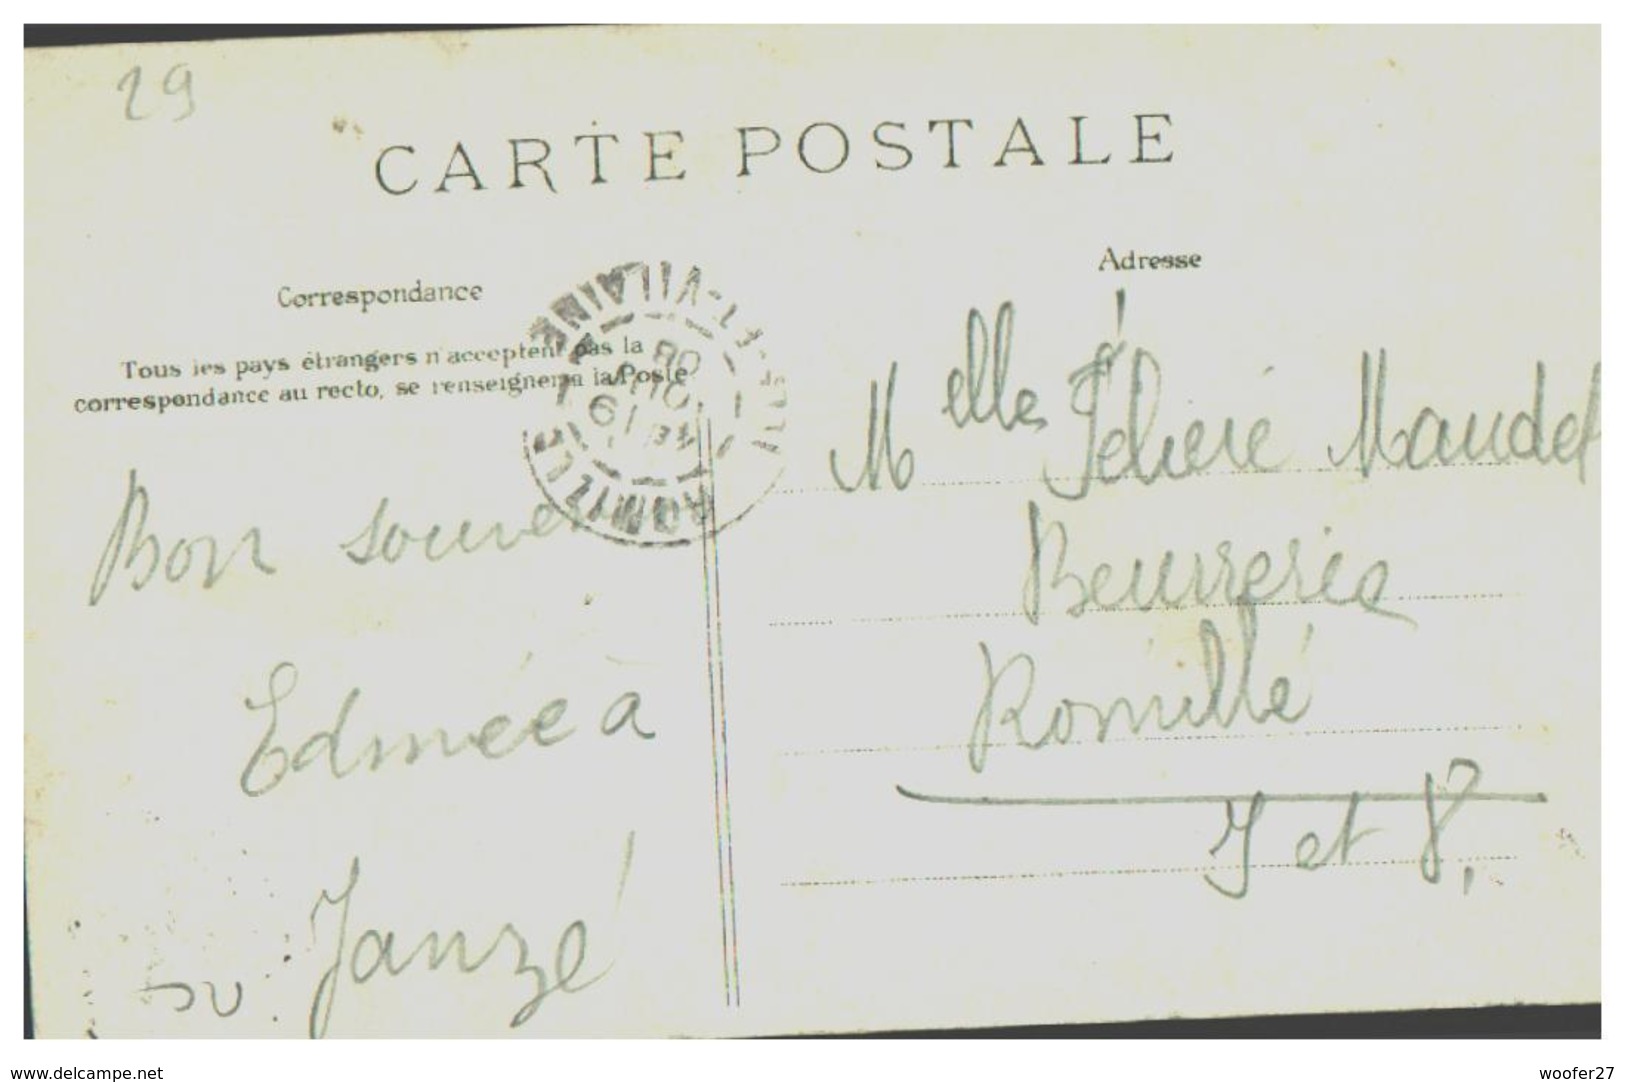 29
CARTE POSTALE
Correspondance
Adresse
Tous les pays étrangers n'acceptent pas la
correspondance au recto, se renseigner à la Poste
ROMILLÉ
ILLE-ET-VILAINE
08
Bon souvenir
Edmée à
Janzé
Melles Maudet
Beurrerie
Romillé
I et V.
www.delcampe.net
woofer27